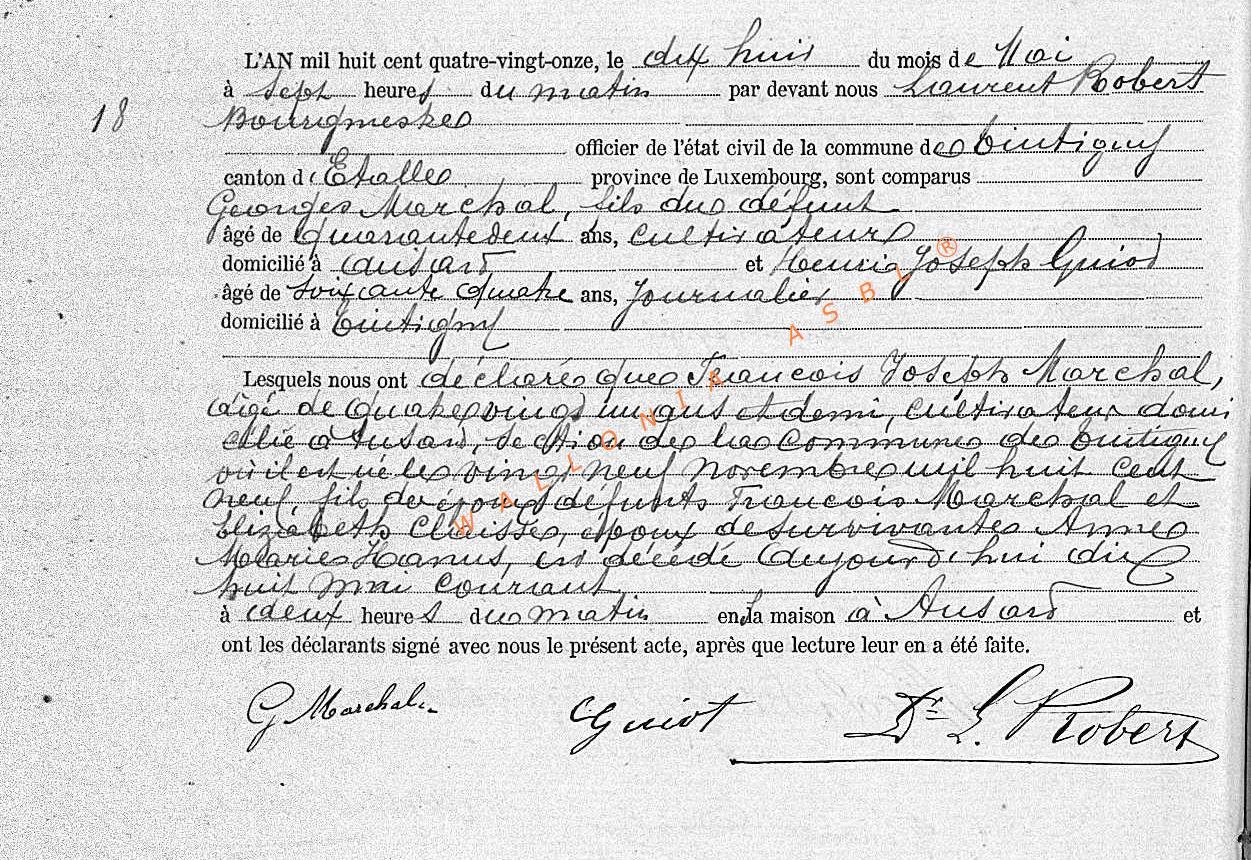 L'AN mil huit cent quatre-vingt-onze, le dix huit du mois de Mai
à sept heures du matin par devant nous Laurent Robert
18
Bourgmestre
officier de l'état civil de la commune de Tintigny
canton d'Etalle province de Luxembourg, sont comparus
Georges Marchal, fils du défunt
âgé de quarante deux ans, cultivateur
domicilié à Ansart et Henri Joseph Guiot
âgé de soixante quatre ans, journalier
domicilié à Tintigny
Lesquels nous ont déclaré que Francois Joseph Marchal,
âgé de quatre vingt un ans et demi, cultivateur domi
cilié à Ansart, section de la commune de Tintigny
où il est né le vingt neuf novembre mil huit cent
neuf, fils des époux défunts Francois Marchal et
Elizabeth Claisse, époux de survivante Anne
Marie Hanus, est décédé aujourd'hui dix
huit mai courant
à deux heures du matin en sa maison à Ansart et
ont les déclarants signé avec nous le présent acte, après que lecture leur en a été faite.
G Marchal
Guiot
Dr L. Robert
WALLONIA ASBL ®